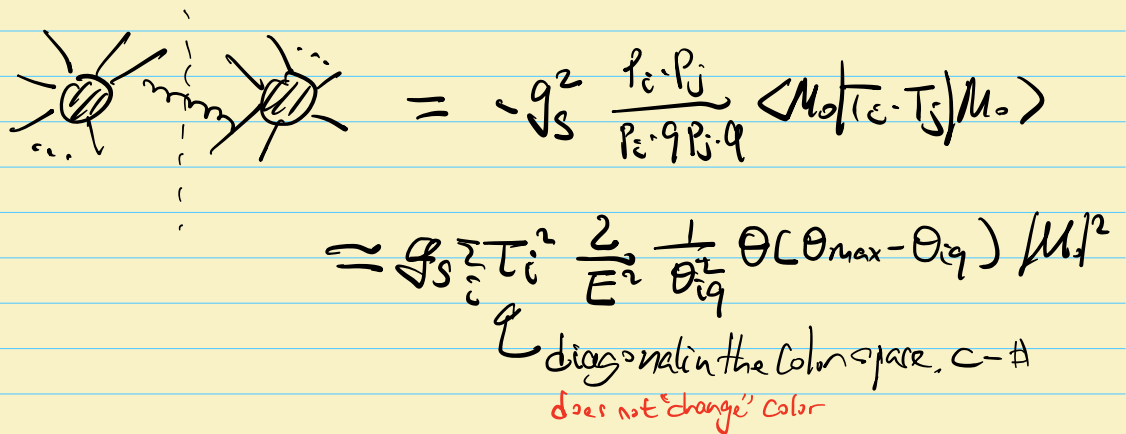 = -g_s^2 \frac{P_i \cdot P_j}{P_i \cdot q P_j \cdot q} <M_0|T_i \cdot T_j|M_0>
≈ g_s \sum_i T_i^2 \frac{2}{E^2} \frac{1}{θ_{iq}^2} θ(θ_{max} - θ_{iq}) |M_0|^2
diagonal in the Color space. C-#
does not "change" color